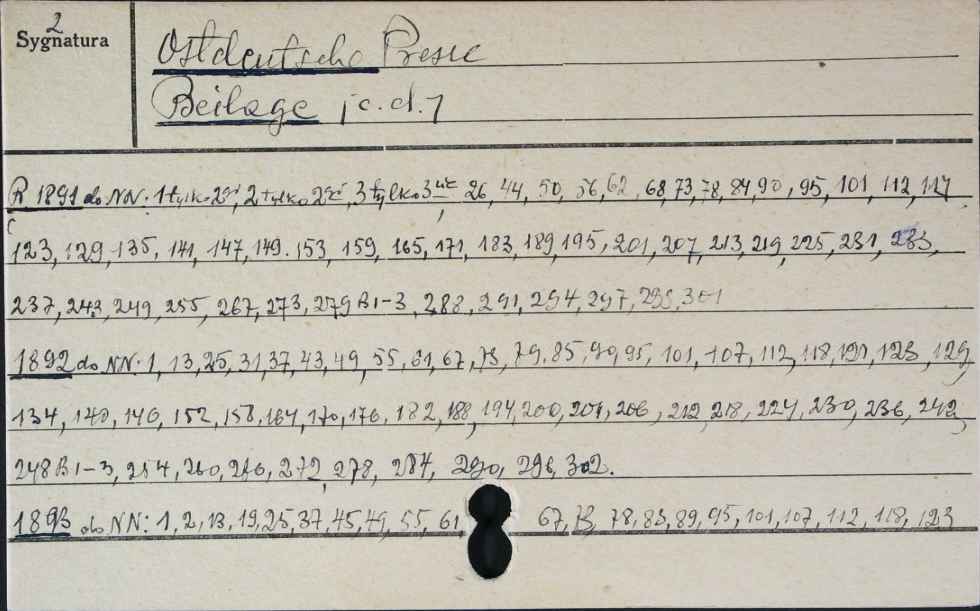 2
Sygnatura
Ostdeutsche Presse
Beilage /c.d./
R 1891 do NN: 1 tylko 2, 2 tylko 2, 3 tylko 3, 26, 44, 50, 56, 62, 68, 73, 78, 84, 90, 95, 101, 112, 117
123, 129, 135, 141, 147, 149, 153, 159, 165, 171, 183, 189, 195, 201, 207, 213, 219, 225, 231, 233,
237, 243, 249, 255, 267, 273, 279 B1-3, 288, 291, 294, 297, 299, 301
1892 do NN: 1, 13, 25, 31, 37, 43, 49, 55, 61, 67, 73, 79, 85, 90, 95, 101, 107, 112, 118, 123, 129,
134, 140, 146, 152, 158, 164, 170, 176, 182, 188, 194, 200, 201, 206, 212, 218, 224, 230, 236, 242,
248 B1-3, 254, 260, 266, 272, 278, 284, 290, 296, 302.
1893 do NN: 1, 2, 13, 19, 25, 37, 45, 49, 55, 61, 67, 73, 78, 83, 89, 95, 101, 107, 112, 118, 123